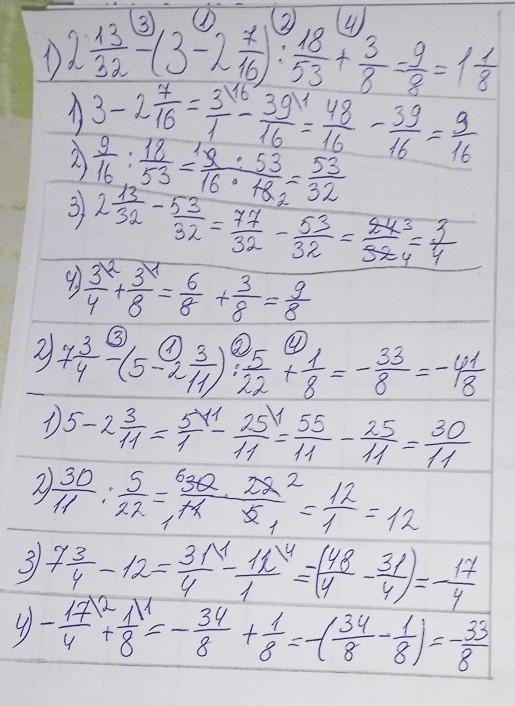 ③ ① ② ④
1) 2 13/32 - (3 - 2 7/16) : 18/53 + 3/8 = 9/8 = 1 1/8
1) 3 - 2 7/16 = 3\16/1 - 39\1/16 = 48/16 - 39/16 = 9/16
2) 9/16 : 18/53 = 1 9 · 53/16 · 18 2 = 53/32
3) 2 13/32 - 53/32 = 77/32 - 53/32 = 24 3/32 4 = 3/4
4) 3\2/4 + 3\1/8 = 6/8 + 3/8 = 9/8
③ ① ② ④
2) 7 3/4 - (5 - 2 3/11) : 5/22 + 1/8 = - 33/8 = - 4 1/8
1) 5 - 2 3/11 = 5\11/1 - 25\1/11 = 55/11 - 25/11 = 30/11
2) 30/11 : 5/22 = 6 30 · 22 2/1 11 5 1 = 12/1 = 12
3) 7 3/4 - 12 = 31\1/4 - 12\4/1 = -(48/4 - 31/4) = - 17/4
4) - 17\2/4 + 1\1/8 = - 34/8 + 1/8 = -(34/8 - 1/8) = - 33/8